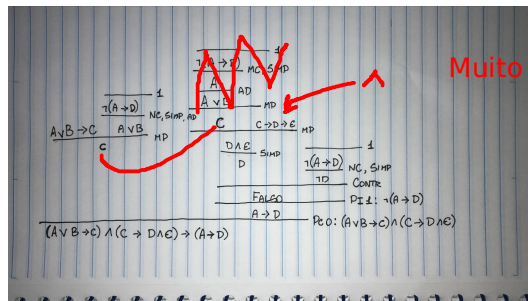 1
¬(A→D) NC, SIMP
A AD
A∨B MD
1
¬(A→D) NC, SIMP, AD
A∨B→C A∨B MD
C
C C→D→E MD
^
Muito
D∧E SIMP
D
1
¬(A→D) NC, SIMP
¬D CONTR
FALSO PI1: ¬(A→D)
A→D PC0: (A∨B→C)∧(C→D∧E)
(A∨B→C)∧(C→D∧E)→(A→D)